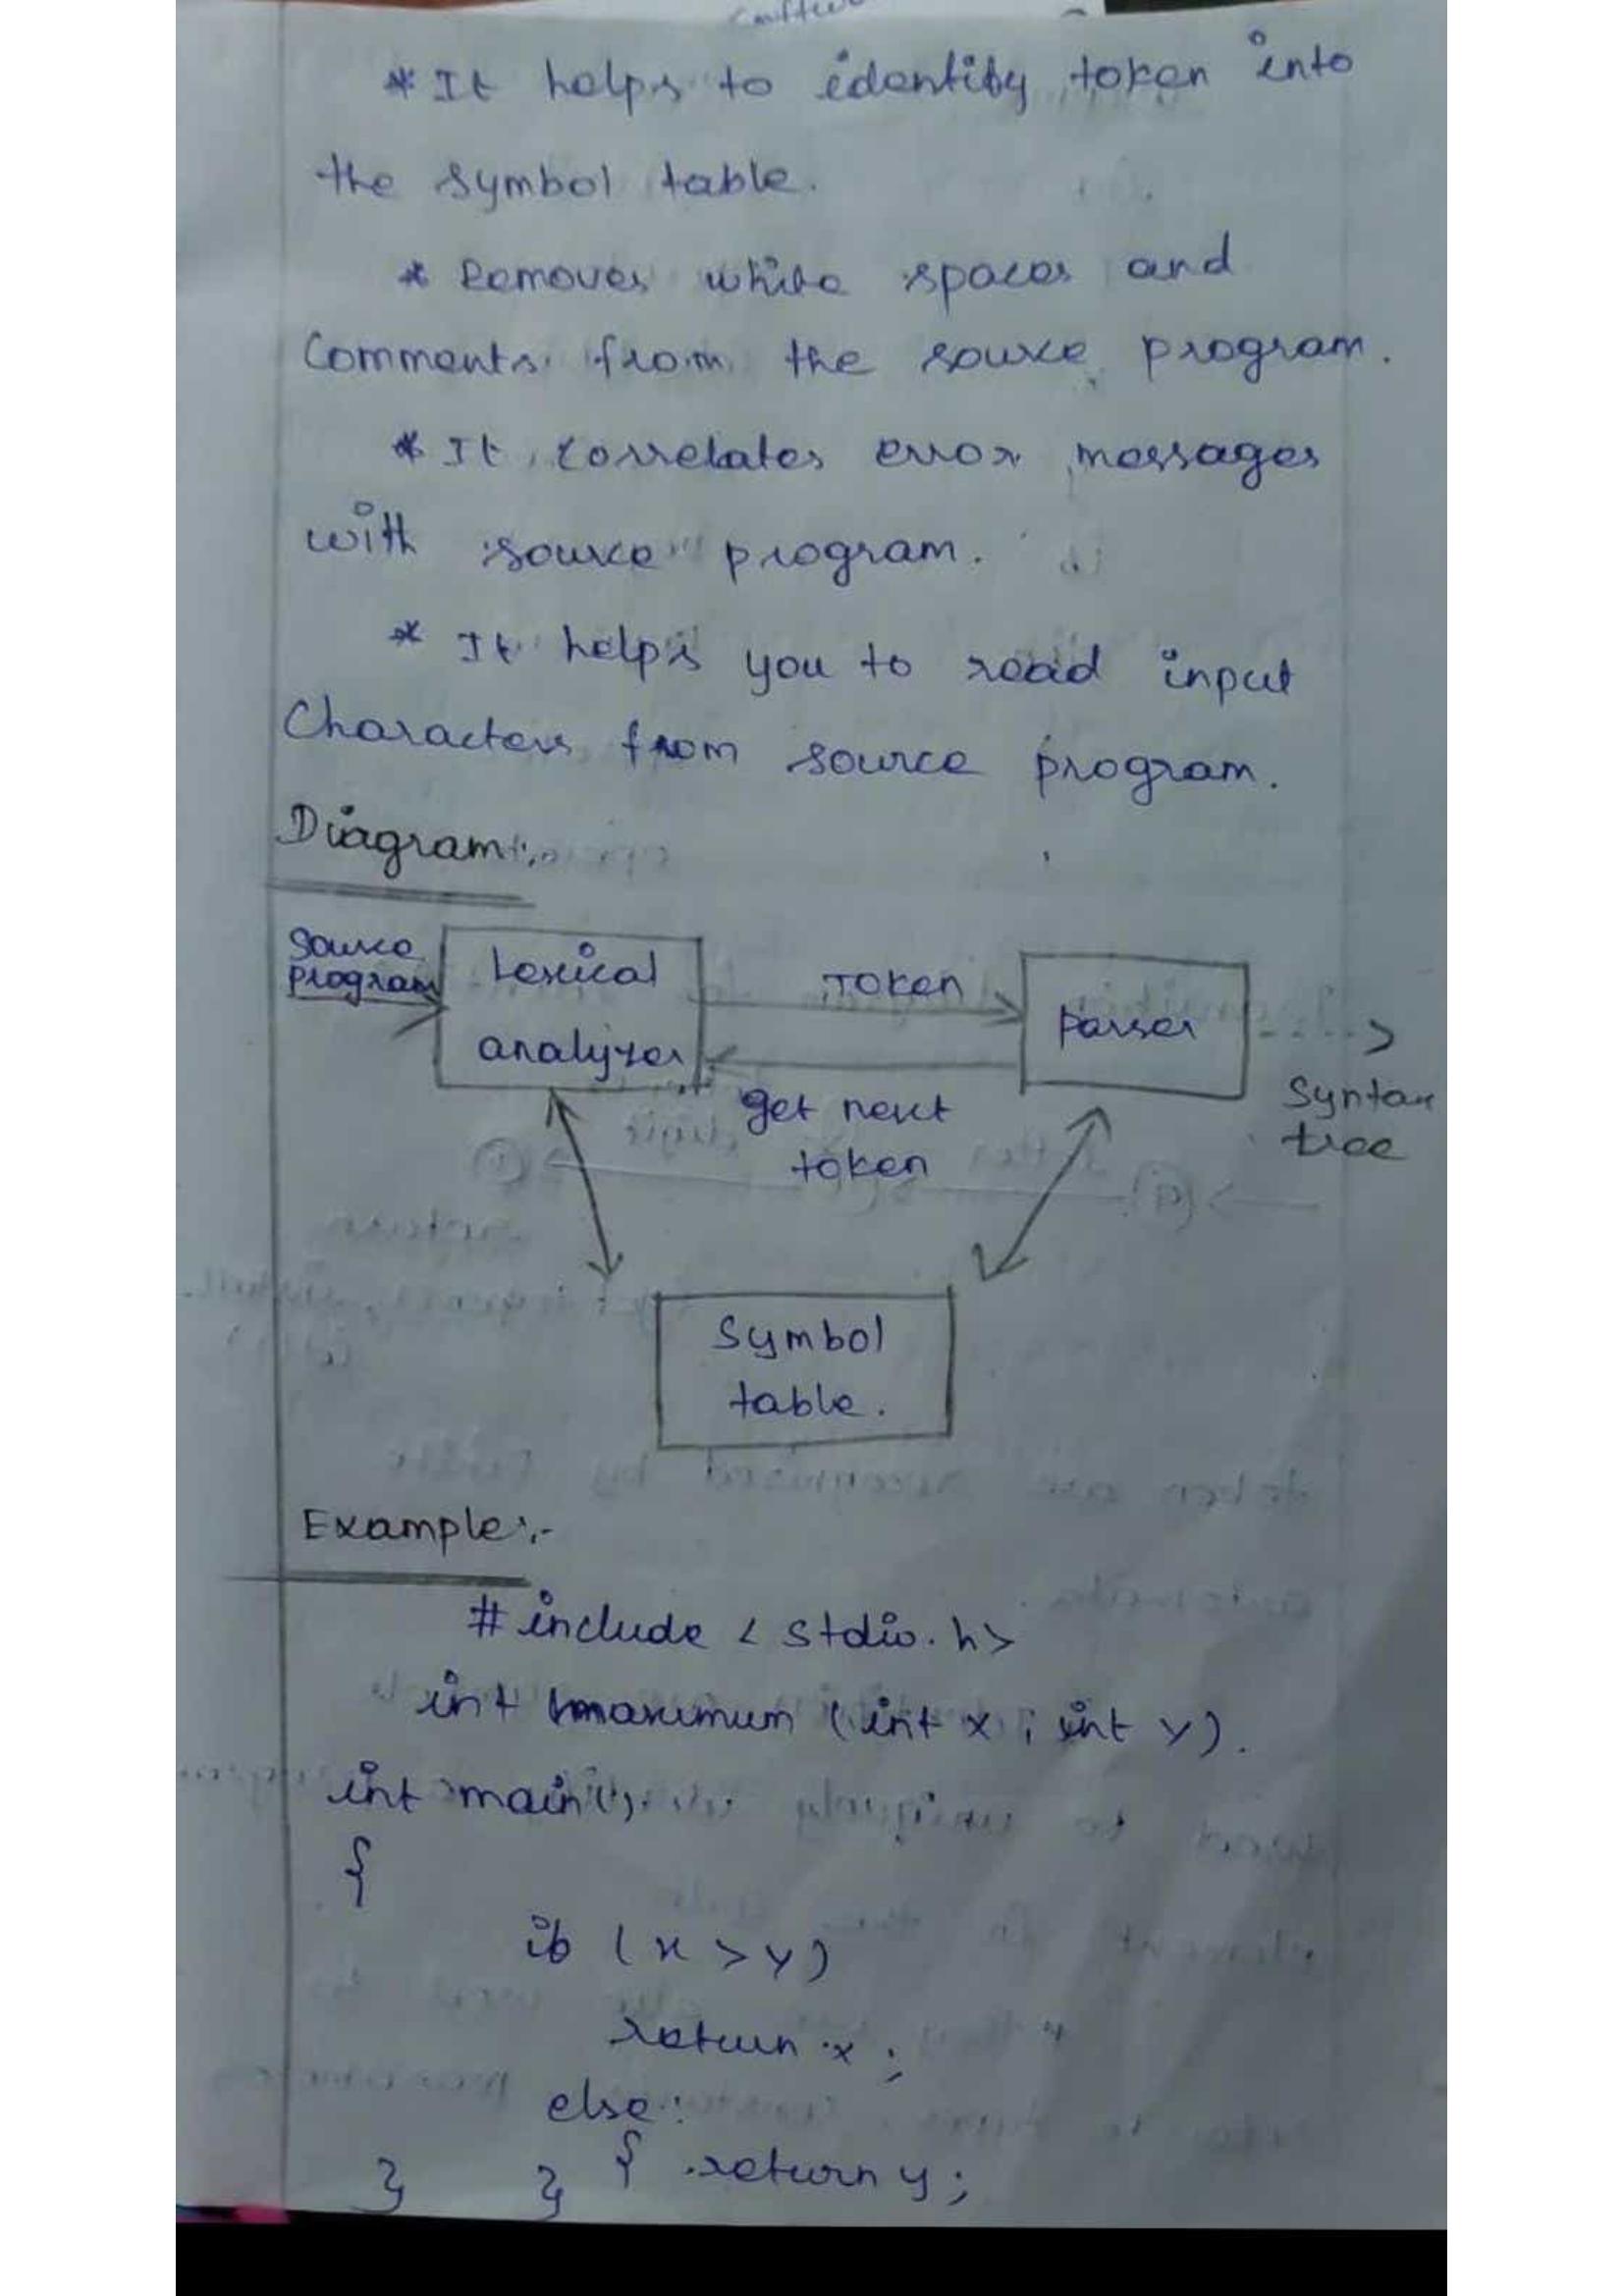 * It helps to identify token into
the symbol table.
* Removes white spaces and
Comments from the source program.
* It correlates error messages
with source program.
* It helps you to read input
Characters from source program.
Diagram:-
Source
program
Lexical
analyzer
Token
parser
get next
token
Syntax
tree
Symbol
table.
Example:-
#include < stdio.h>
int maximum (int x ; int y).
int main().
{
if (x > y)
return x ;
else:
} } { return y ;